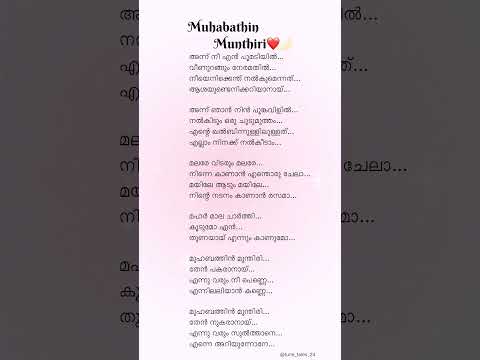 Muhabathin
Munthiri❤️🌙
അന്ന് നീ എൻ പൂമടിയിൽ...
വീണുറങ്ങും നേരമതിൽ...
നീയെനിക്കെന്ത് നൽകുമെന്നത്...
ആശയുണ്ടെനിക്കറിയാനായ്...
അന്ന് ഞാൻ നിൻ പൂങ്കവിളിൽ...
നൽകിടും ഒരു ചുടുമുത്തം...
എന്റെ ഖൽബിന്നുള്ളിലുള്ളത്...
എല്ലാം നിനക്ക് നൽകീടാം...
മലരേ വിടരും മലരേ...
നിന്നെ കാണാൻ എന്തൊരു ചേലാ...
മയിലേ ആടും മയിലേ...
നിന്റെ നടനം കാണാൻ രസമാ...
മഹർ മാല ചാർത്തി...
കൂടുമോ എൻ...
തുണയായ് എന്നും കാണുമോ...
മുഹബത്തിൻ മുന്തിരി...
തേൻ പകരാനായ്...
എന്നു വരും നീ പെണ്ണെ...
എന്നിലലിയാൻ കണ്ണെ...
മുഹബത്തിൻ മുന്തിരി...
തേൻ നുകരാനായ്...
എന്നു വരും സുൽത്താനെ...
എന്നെ അറിയുന്നോനേ...